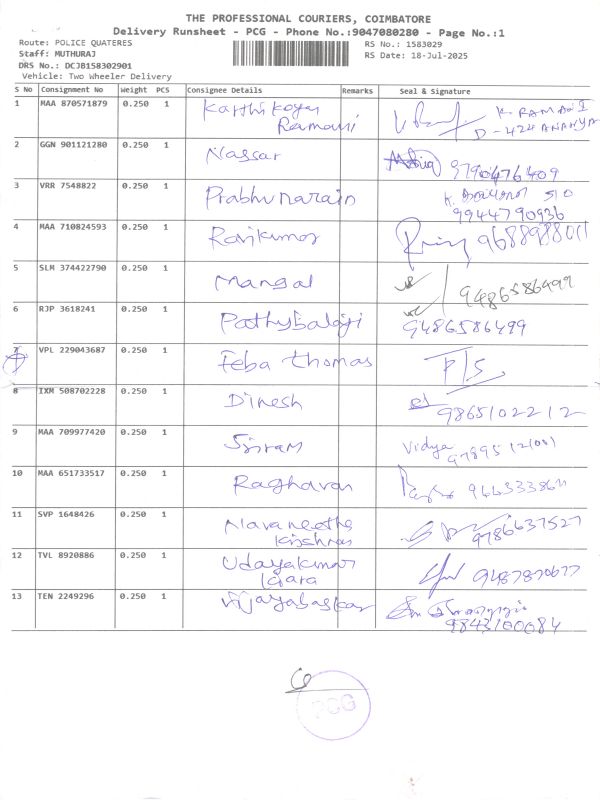 THE PROFESSIONAL COURIERS, COIMBATORE
Delivery Runsheet - PCG - Phone No.:9047080280 - Page No.:1
Route: POLICE QUATERES
RS No.: 1583029
Staff: MUTHURAJ
RS Date: 18-Jul-2025
DRS No.: DCJB158302901
Vehicle: Two Wheeler Delivery
S No Consignment No Weight PCS Consignee Details Remarks Seal & Signature
1 MAA 870571879 0.250 1 Karthikeyan K. RAMANI
Ramani D-424 ANANYA
2 GGN 901121280 0.250 1 Nassar 9790476409
3 VRR 7548822 0.250 1 Prabhu narain S/O
9944790936
4 MAA 710824593 0.250 1 Ravikumar 9688988011
5 SLM 374422790 0.250 1 Mangal 9486586499
6 RJP 3618241 0.250 1 Pathybalaji 9486586499
7 VPL 229043687 0.250 1 Feba thomas P/S
8 IXM 508702228 0.250 1 Dinesh 9865102212
9 MAA 709977420 0.250 1 Sriram Vidya
10 MAA 651733517 0.250 1 Raghavan
11 SVP 1648426 0.250 1 Navaneetha
Krishnan 9786637527
12 TVL 8920886 0.250 1 Udayakumar
13 TEN 2249296 0.250 1 Vijayabaskar
9843100084
PCG